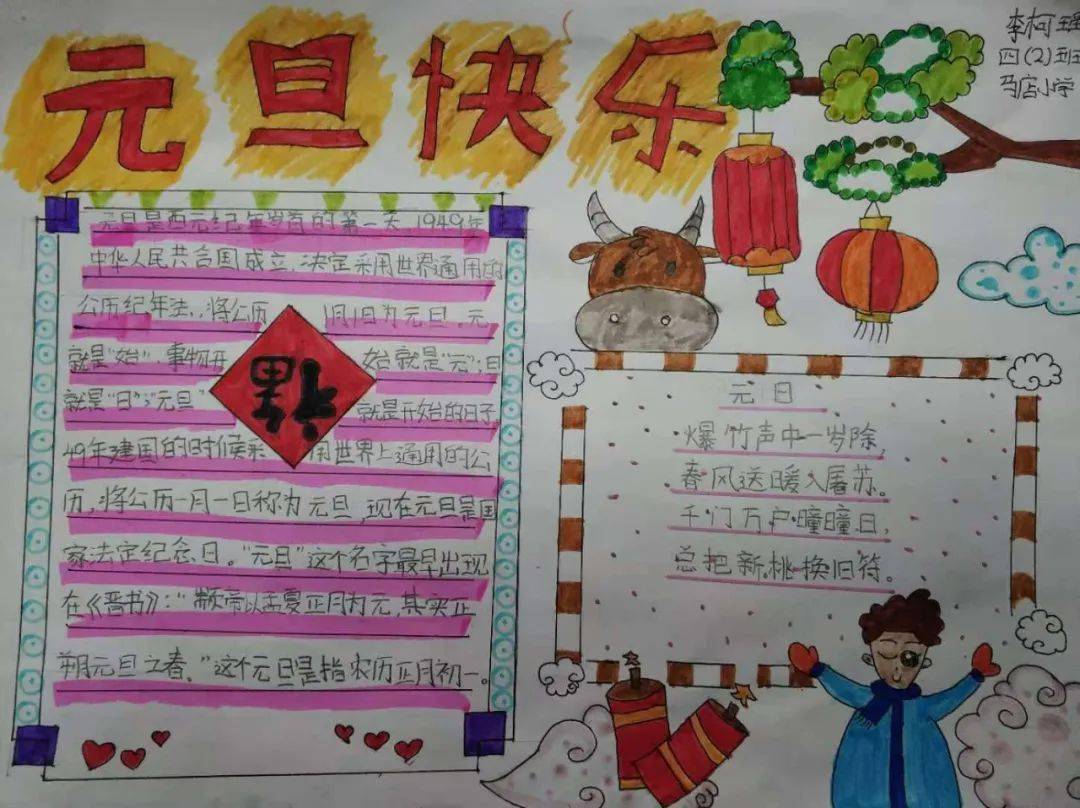 元旦快乐
李柯瑶
四(2)班
马店小学
元旦是西元纪年岁首的第一天,1949年
中华人民共合国成立,决定采用世界通用的
公历纪年法,将公历 1月1日为元旦。元
就是“始”,事物开 始就是“元”;旦
就是“日”;“元旦” 就是开始的日子
49年建国的时候采 用世界上通用的公
历,将公历一月一日称为元旦,现在元旦是国
家法定纪念日。“元旦”这个名字最早出现
在《晋书》:“颛帝以孟夏正月为元,其实正
朔元旦立春,”这个元旦是指农历正月初一。
福
元日
爆竹声中一岁除,
春风送暖入屠苏。
千门万户曈曈日,
总把新桃换旧符。